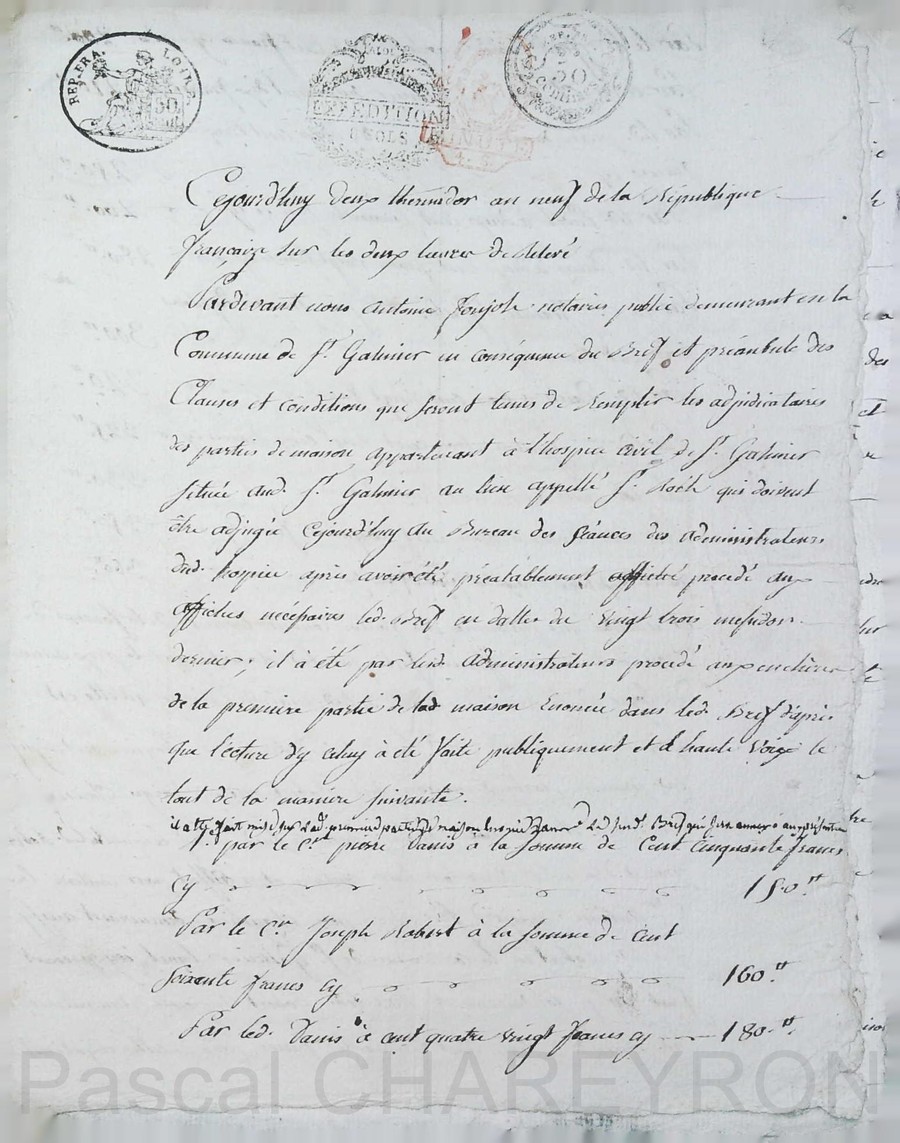 REP. FRA. LOIRE
50
EXPEDITION
8 SOLS
MINUTE
50
Centimes
Cejourd'huy deux thermidor an neuf de la République
française sur les deux heures de Relevé
Pardevant nous antoine notaire public demeurant en la
Commune de St. Galmier en conséquence du Bref et préambule des
Clauses et conditions que seront tenus de Remplir les adjudicataires
des parties de maison appartenant à l'hospice civil de St. Galmier
située aud. St. Galmier au lieu appellé St. Roch qui doivent
être adjugée cejourd'huy au Bureau des séances des administrateurs
dud. hospice après avoir été préalablement affiché procédé aux
affiches necéssaires led. Bref en datte du vingt trois messidor
dernier; il à été par lesd. administrateurs procédé aux enchères
de la première partie de lad maison Enoncée dans led. Bref d'après
que lecture d'y celuy à été faite publiquement et à haute voix le
tout de la manière suivante.
il a été fait mise sur lad. première partie de maison led. susd. Bref qui sera annexé aux présentes
1°. par le Cn. pierre Danis à la somme de Cent Cinquante francs
cy 150.tt
Par le Cn. Joseph Robert à la somme de Cent
soixante francs cy 160.tt
Par led. Danis à cent quatre vingt francs cy 180.tt
Pascal CHAREYRON